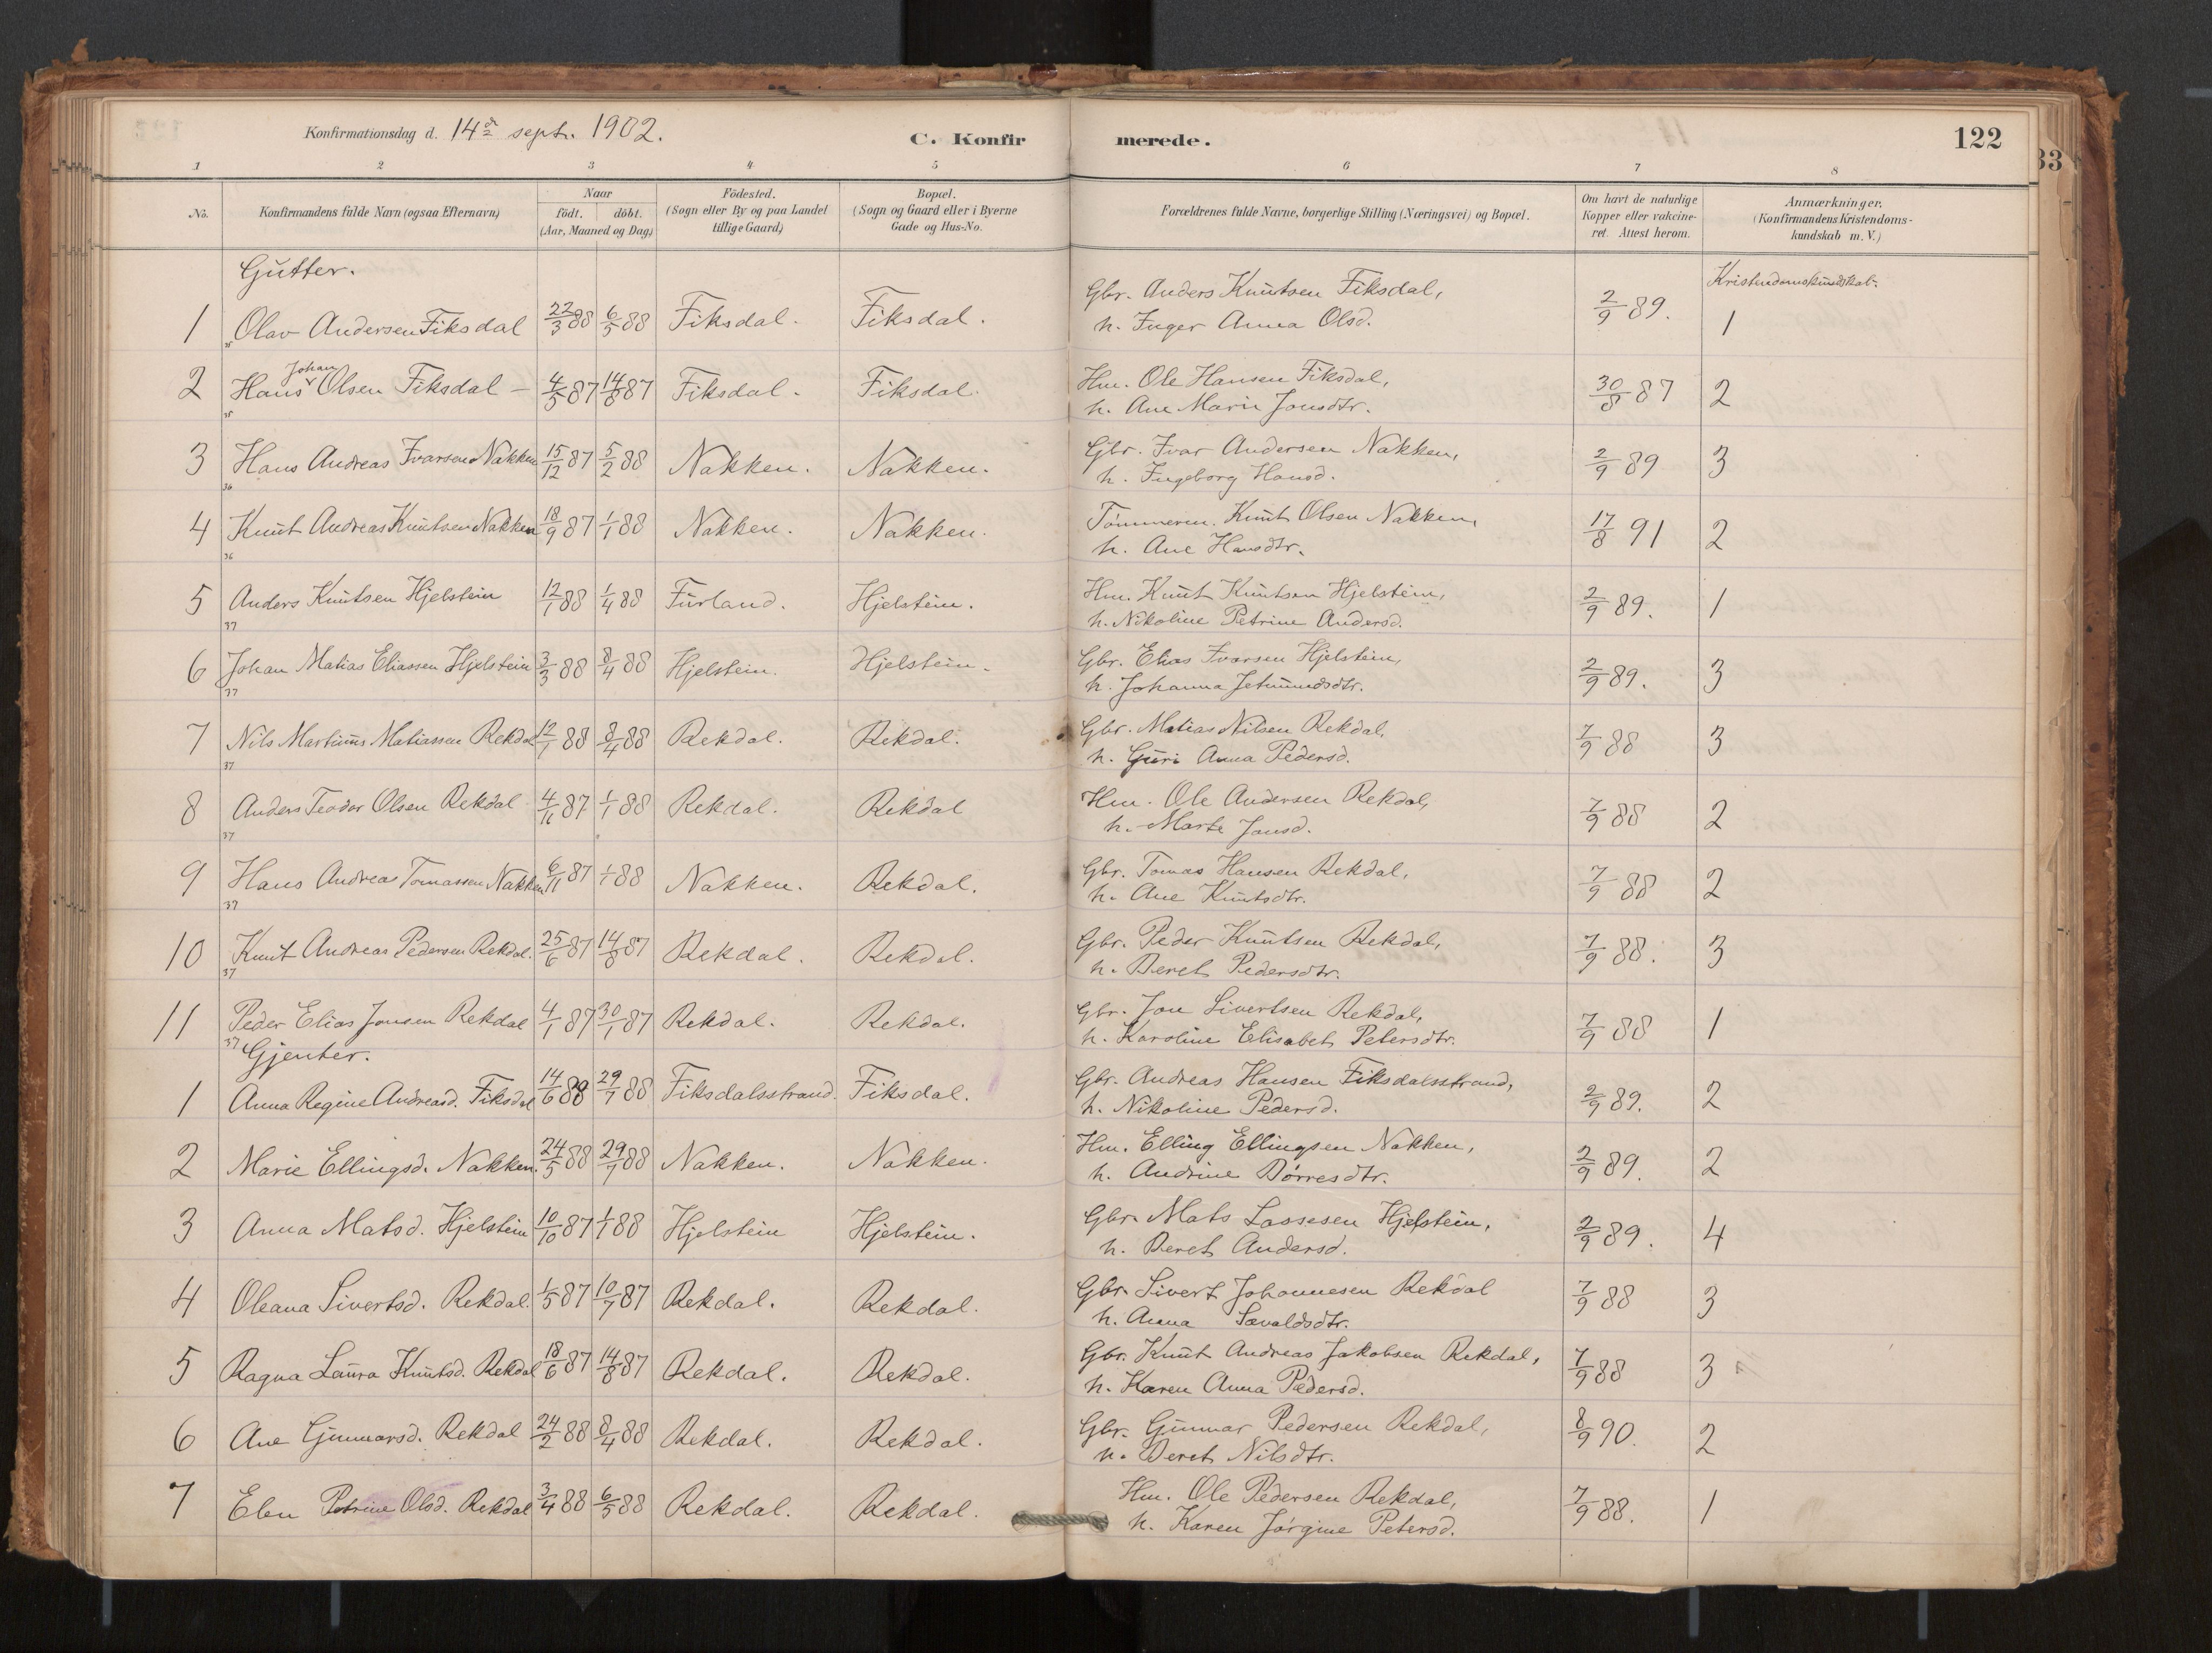 Konfirmationsdag d. 14de sept. 1902. C. Konfirmerede. 122
33
1 2 3 4 5 6 7 8
No. Konfirmandens fulde Navn (ogsaa Efternavn) Naar födt. döbt. (Aar, Maaned og Dag) Födested. (Sogn eller By og paa Landet tillige Gaard) Bopæl. (Sogn og Gaard eller i Byerne Gade og Hus-No. Forældrenes fulde Navne, borgerlige Stilling (Næringsvei) og Bopæl. Om havt de naturlige Kopper eller vakcineret. Attest herom. Anmærkninger. (Konfirmandens Kristendomskundskab m. V.)
Gutter. Kristendomskundskab.
1 Olav Andersen Fiksdal 22/3 88 6/5 88 Fiksdal. Fiksdal. Gbr. Anders Knutsen Fiksdal, 2/9 89. 1
35 h. Inger Anna Olsd.
2 Hans Johan Olsen Fiksdal – 4/5 87 14/8 87 Fiksdal. Fiksdal. Hm. Ole Hansen Fiksdal, 30/8 87 2
35 h. Ane Marie Jonsdtr.
3 Hans Andreas Ivarsen Nakken 15/12 87 5/2 88 Nakken. Nakken. Gbr. Ivar Andersen Nakken, 2/9 89 3
36 h. Ingeborg Hansd.
4 Knut Andreas Knutsen Nakken 18/9 87 1/1 88 Nakken. Nakken. Tömmerm. Knut Olsen Nakken, 17/8 91 2
36 h. Ane Hansdtr.
5 Anders Knutsen Hjelstein 12/1 88 1/4 88 Furland. Hjelstein. Hm. Knut Knutsen Hjelstein, 2/9 89. 1
37 h. Nikoline Petrine Andersd.
6 Johan Matias Eliassen Hjelstein 3/3 88 8/4 88 Hjelstein. Hjelstein. Gbr. Elias Ivarsen Hjelstein, 2/9 89. 3
37 h. Johanna Jetmundsdtr.
7 Nils Martinus Matiassen Rekdal 12/1 88 8/4 88 Rekdal. Rekdal. Gbr. Matias Nilsen Rekdal, 7/9 88 3
37 h. Guri Anna Pedersd.
8 Anders Teodor Olsen Rekdal 4/11 87 1/1 88 Rekdal. Rekdal Hm. Ole Andersen Rekdal, 7/9 88 2
37 h. Marte Jonsd.
9 Hans Andreas Tomassen Nakken 6/11 87 1/1 88 Nakken. Rekdal. Gbr. Tomas Hansen Rekdal, 7/9 88 2
37 h. Ane Knutsdtr.
10 Knut Andreas Pedersen Rekdal. 25/6 87 14/8 87 Rekdal. Rekdal. Gbr. Peder Knutsen Rekdal, 7/9 88. 3
37 h. Beret Pedersdtr.
11 Peder Elias Jonsen Rekdal 4/1 87 30/1 87 Rekdal. Rekdal. Gbr. Jon Sivertsen Rekdal, 7/9 88 1
37 h. Karoline Elisabet Petersdtr.
Gjenter.
1 Anna Regine Andreasd. Fiksdal 14/6 88 29/7 88 Fiksdalsstrand. Fiksdal. Gbr. Andreas Hansen Fiksdalsstrand, 2/9 89. 2
h. Nikoline Pedersd.
2 Marie Ellingsd. Nakken. 24/5 88 29/7 88 Nakken. Nakken. Hm. Elling Ellingsen Nakken, 2/9 89. 2
h. Andrine Börresdtr.
3 Anna Matsd. Hjelstein 10/10 87 1/1 88 Hjelstein Hjelstein. Gbr. Mats Lassesen Hjelstein, 2/9 89. 4
h. Beret Andersd.
4 Oleana Sivertsd. Rekdal. 1/5 87 10/7 87 Rekdal. Rekdal. Gbr. Sivert Johannesen Rekdal 7/9 88 3
h. Anna Sævaldsdtr.
5 Ragna Laura Knutsd. Rekdal 18/6 87 14/8 87 Rekdal. Rekdal. Gbr. Knut Andreas Jakobsen Rekdal, 7/9 88 3
h. Karen Anna Pedersd.
6 Ane Gunnarsd. Rekdal 24/2 88 8/4 88 Rekdal. Rekdal. Gbr. Gunnar Pedersen Rekdal, 8/9 90. 2
h. Beret Nilsdtr.
7 Elen Petrine Olsd. Rekdal 3/4 88 6/5 88 Rekdal. Rekdal. Hm. Ole Pedersen Rekdal, 7/9 88. 1
h. Karen Jörgine Petersd.